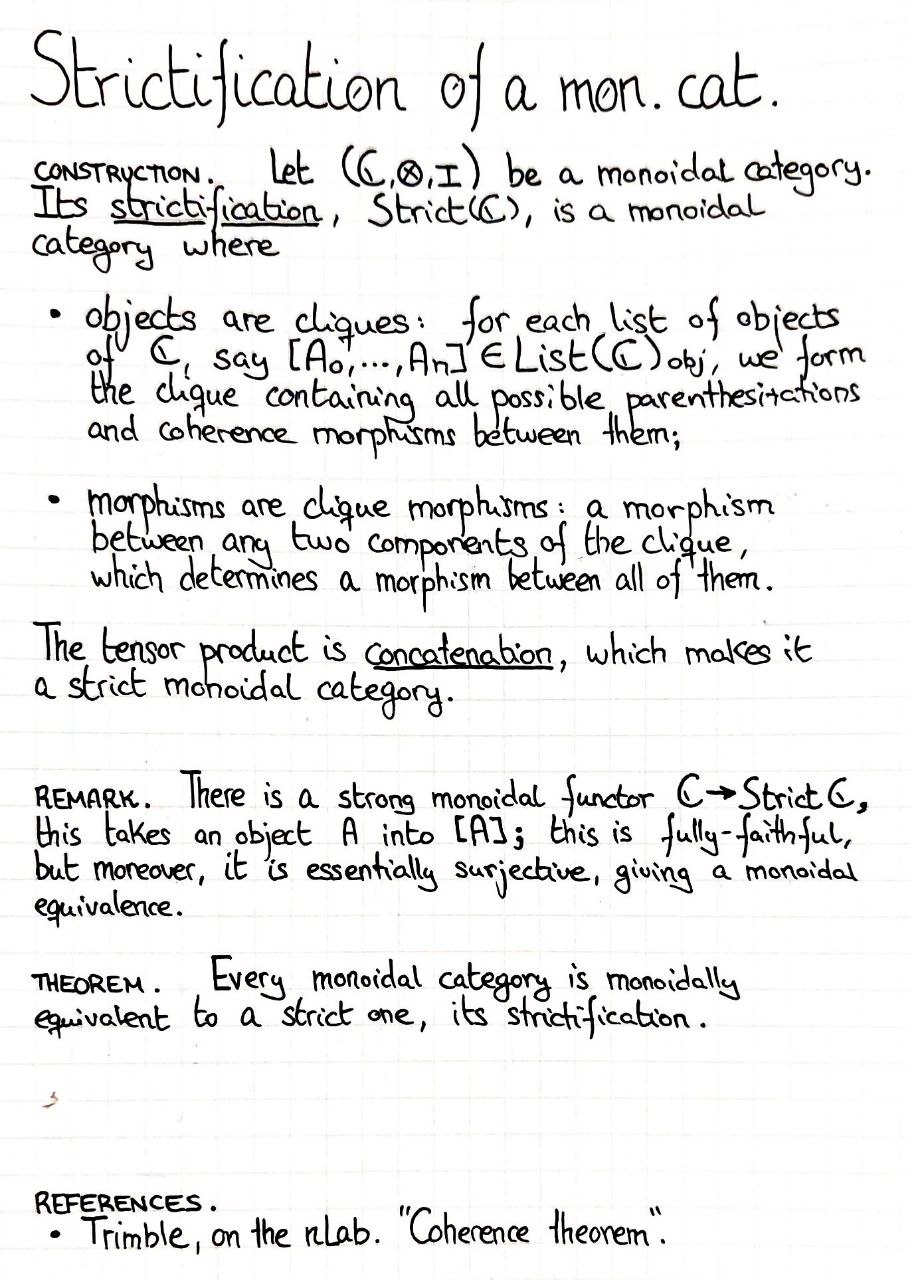 Strictification of a mon. cat.
CONSTRUCTION. Let (ℂ,⊗,I) be a monoidal category.
Its strictification, Strict(ℂ), is a monoidal
category where
• objects are cliques: for each list of objects
of ℂ, say [A₀,...,Aₙ] ∈ List(ℂ)obj, we form
the clique containing all possible parenthesitations
and coherence morphisms between them;
• morphisms are clique morphisms: a morphism
between any two components of the clique,
which determines a morphism between all of them.
The tensor product is concatenation, which makes it
a strict monoidal category.
REMARK. There is a strong monoidal functor ℂ→Strict ℂ,
this takes an object A into [A]; this is fully-faithful,
but moreover, it is essentially surjective, giving a monoidal
equivalence.
THEOREM. Every monoidal category is monoidally
equivalent to a strict one, its strictification.
REFERENCES.
• Trimble, on the nLab. "Coherence theorem".